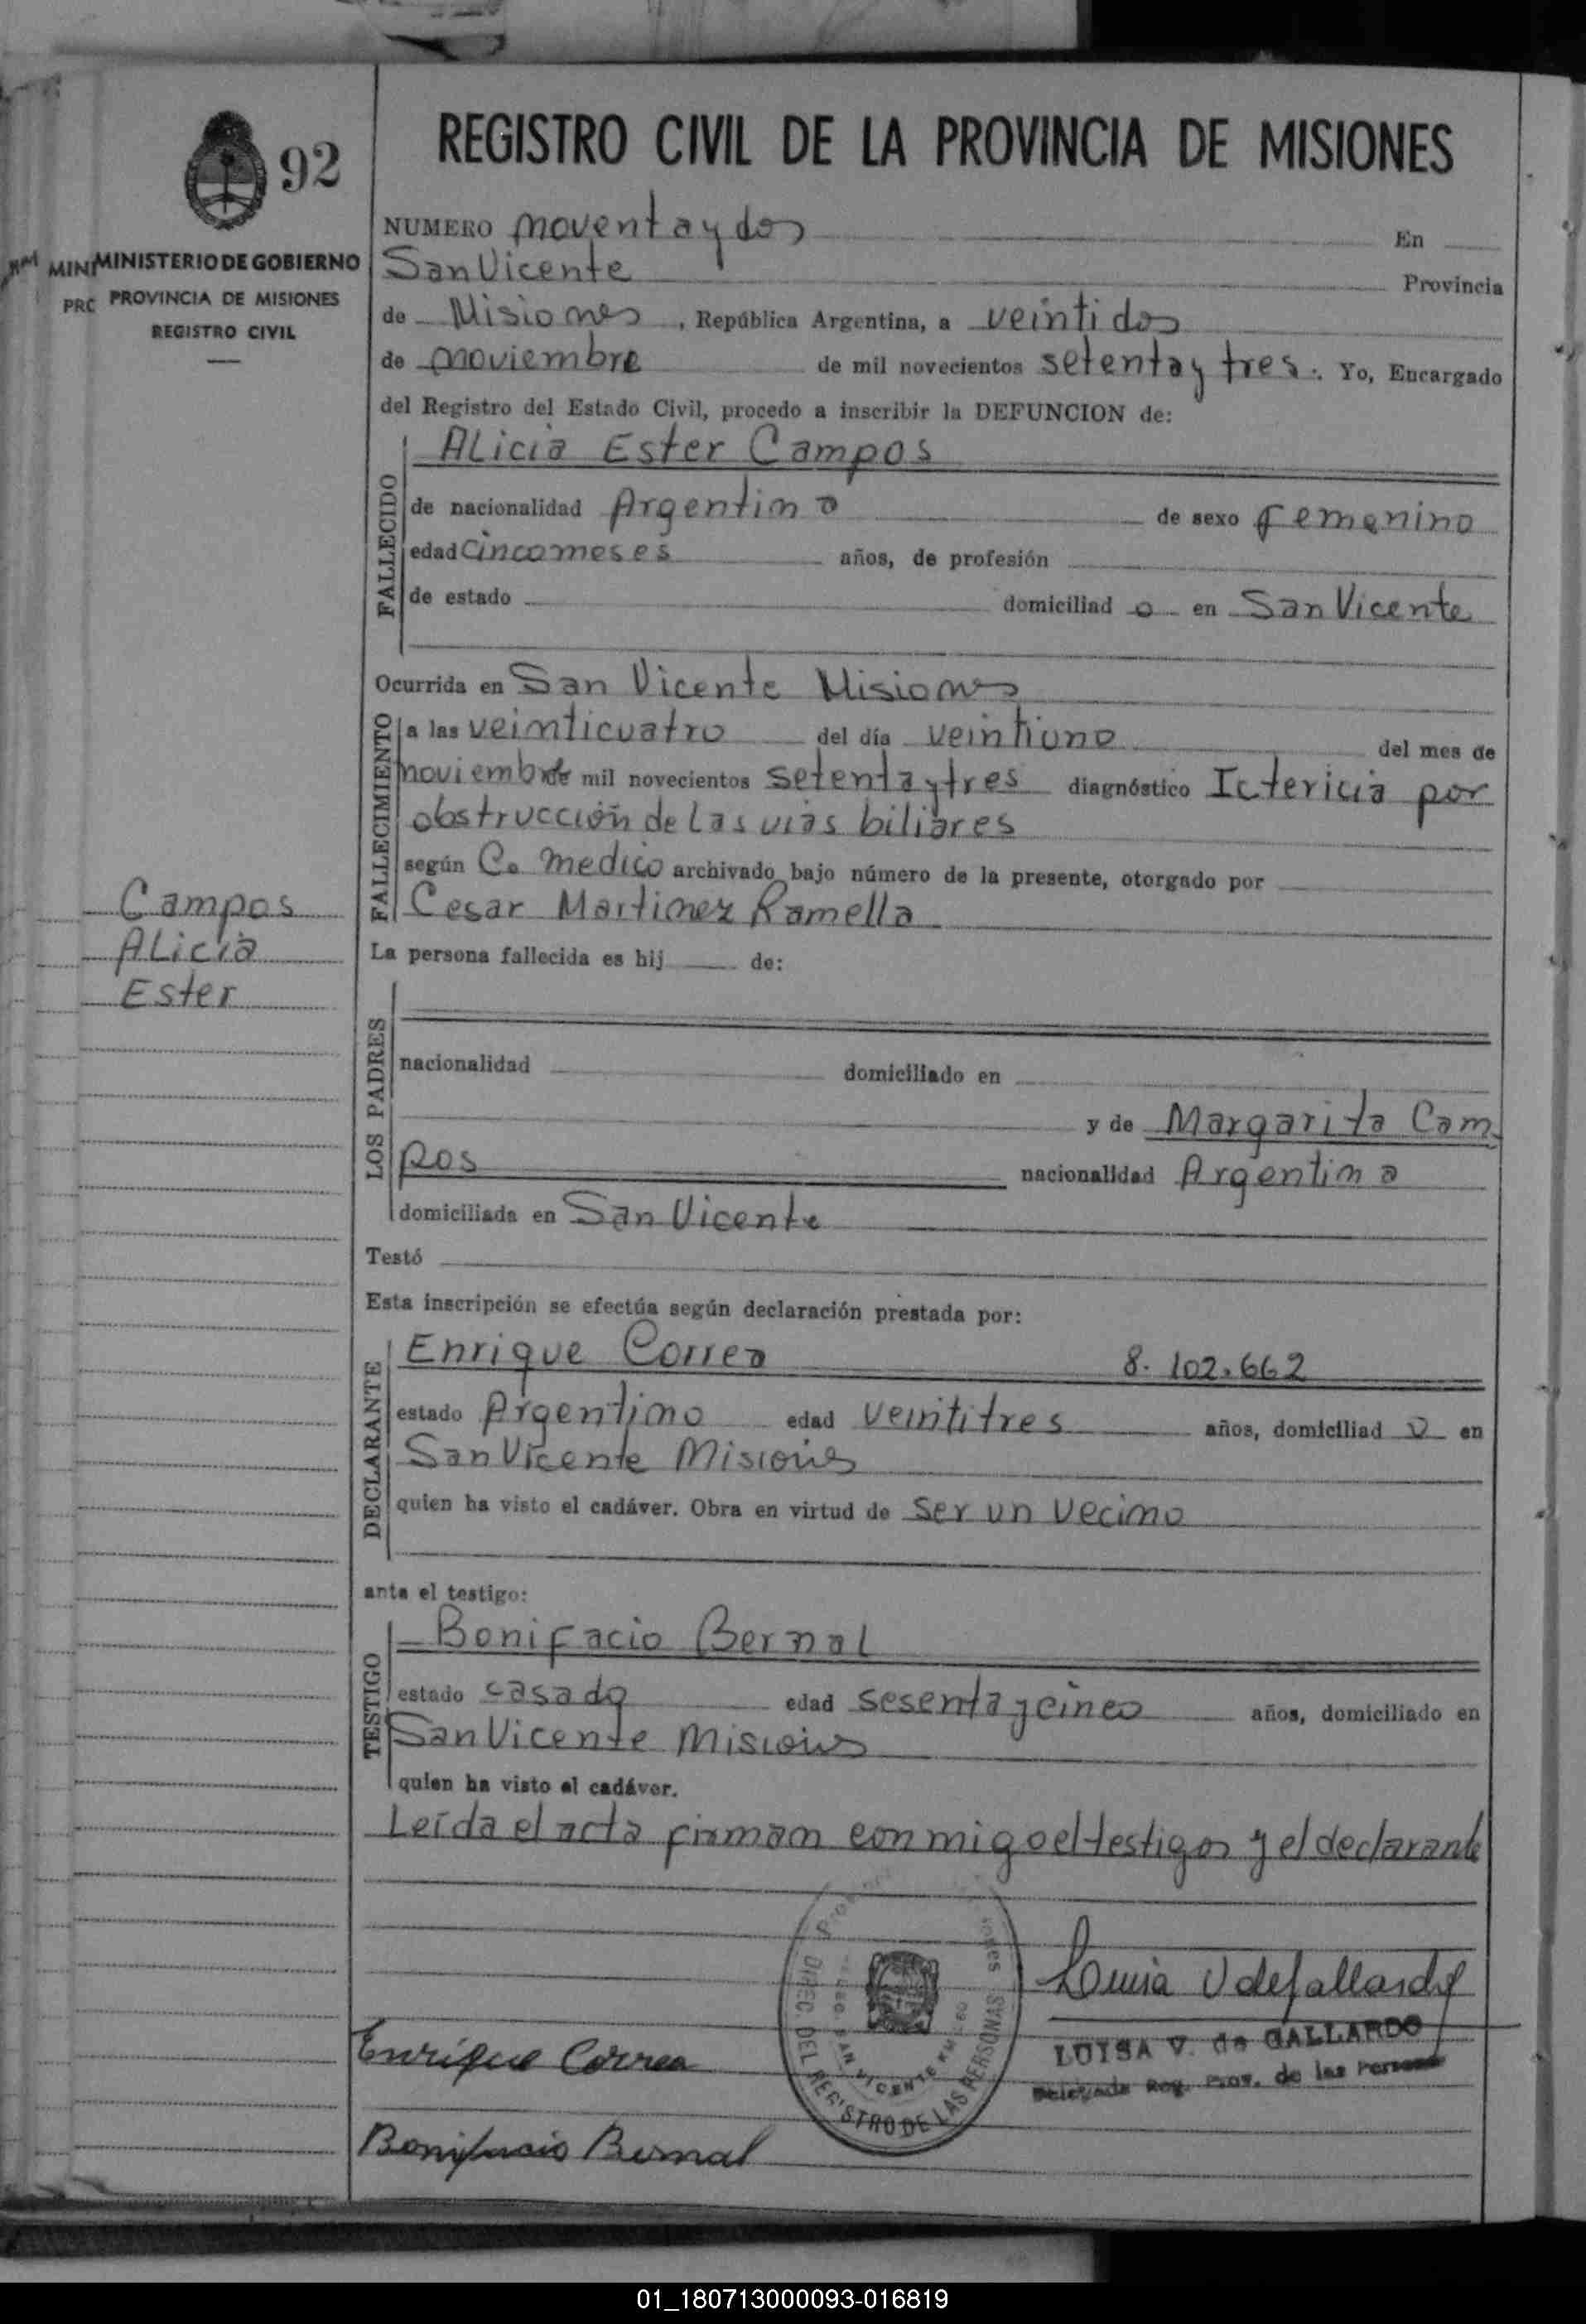 92
MINISTERIO DE GOBIERNO
PROVINCIA DE MISIONES
REGISTRO CIVIL
MINI
PRC
Campos
ALicia
Ester
REGISTRO CIVIL DE LA PROVINCIA DE MISIONES
NUMERO noventa y dos En
San Vicente Provincia
de Misiones, República Argentina, a veintidos
de noviembre de mil novecientos setenta y tres. Yo, Encargado
del Registro del Estado Civil, procedo a inscribir la DEFUNCION de:
FALLECIDO
ALicia Ester Campos
de nacionalidad Argentina de sexo femenino
edad cinco meses años, de profesión
de estado domiciliad o en San Vicente
Ocurrida en San Vicente Misiones
FALLECIMIENTO
a las veinticuatro del día veintiuno del mes de
noviembre de mil novecientos setenta y tres diagnóstico Ictericia por
obstrucción de Las vias biliares
según C. medico archivado bajo número de la presente, otorgado por
Cesar Martinez Ramella
La persona fallecida es hij de:
LOS PADRES
nacionalidad domiciliado en
y de Margarita Cam
pos nacionalidad Argentina
domiciliada en San Vicente
Testó
Esta inscripción se efectúa según declaración prestada por:
DECLARANTE
Enrique Correa 8.102.662
estado Argentino edad veintitres años, domiciliad o en
San Vicente Misiones
quien ha visto el cadáver. Obra en virtud de ser un vecino
ante el testigo:
TESTIGO
Bonifacio Bernal
estado casado edad sesenta y cinco años, domiciliado en
San Vicente Misiones
quien ha visto el cadáver.
Leída el acta firman conmigo el testigos y el declarante
DIREC. DEL REGISTRO DE LAS PERSONAS
SAN VICENTE
Luisa V de Gallardo
LUISA V. de GALLARDO
Delegada Reg. Prov. de las Personas
Enrique Correa
Bonifacio Bernal
01_180713000093-016819